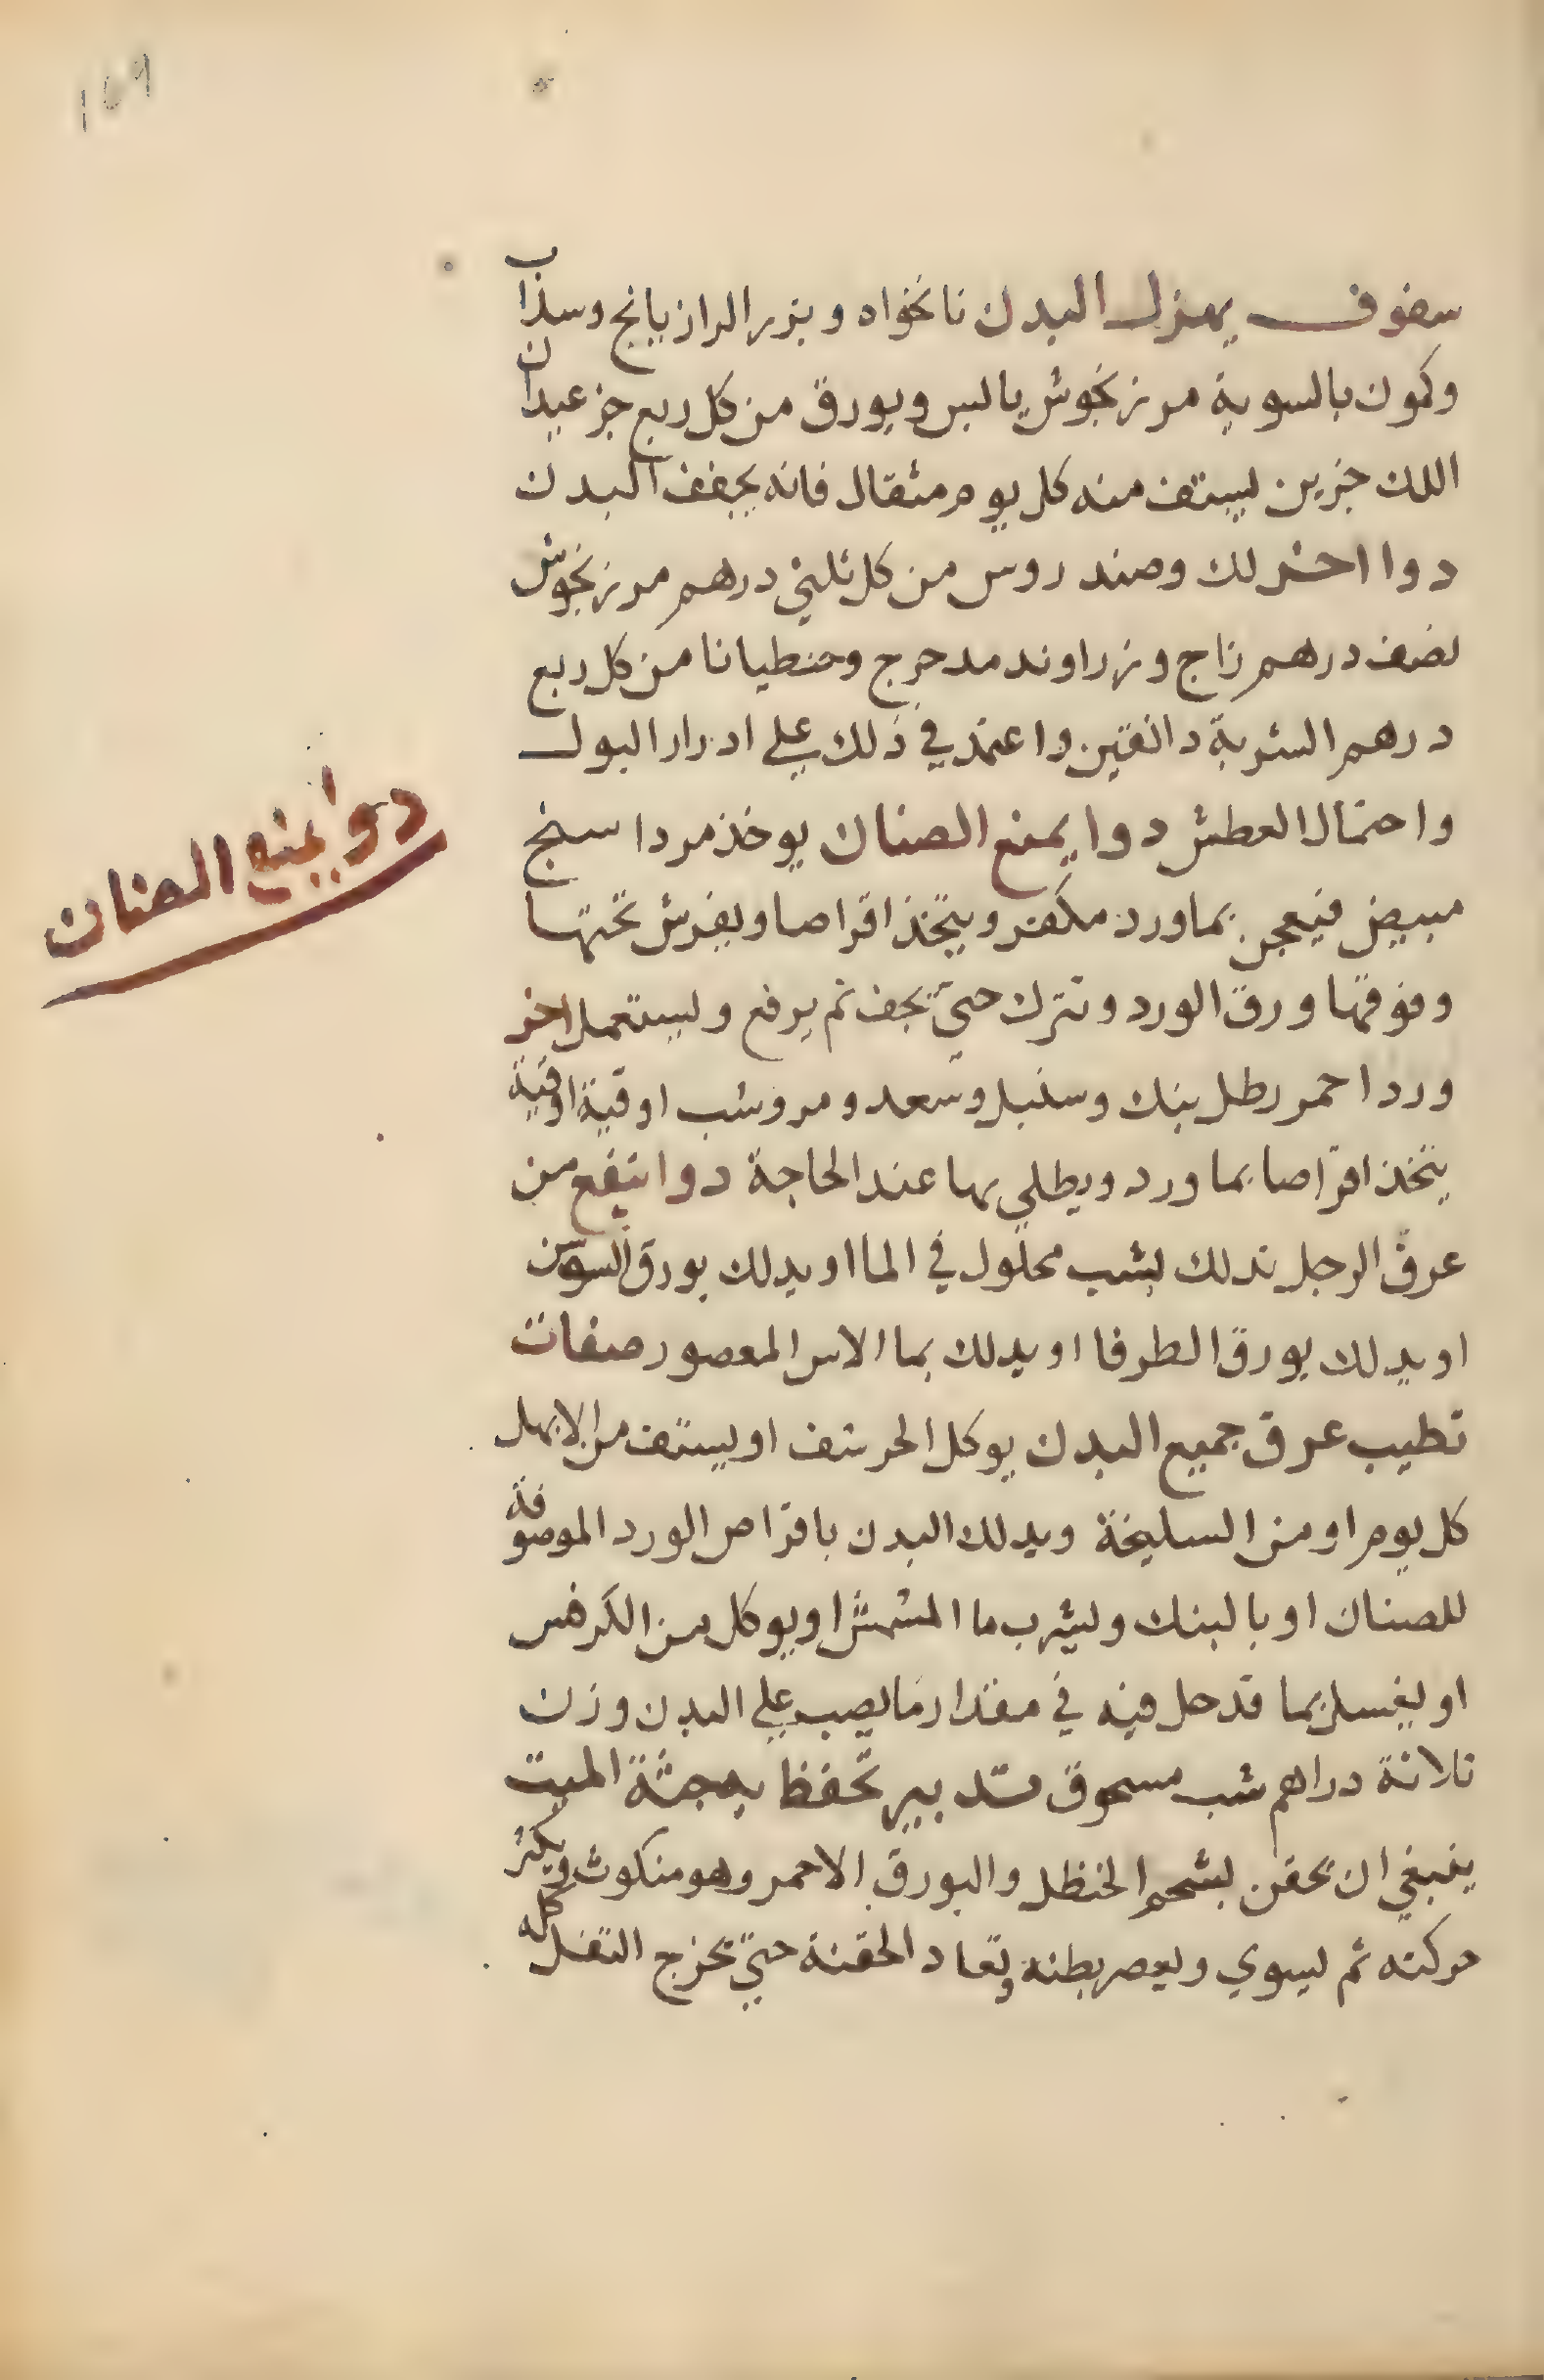 169
سفوف يهزل البدن نانخواه وبزر الرازيانج وسذاب
وكمون بالسوية مرزنجوش يابس وبورق من كل ربع جز عيدان
اللك جزين يستف منه كل يوم مثقال فانه يجفف البدن
دوا اخر لك وصندروس من كل ثلثي درهم مرزنجوش
نصف درهم زاج وزراوند مدحرج وجنطيانا من كل ربع
درهم الشربة دانقين واعتمد في ذلك علي ادرار البول
واحتمال العطش دوا يمنع الصنان يوخذ مرداسنج
مبيض فيعجن بماورد مكفر ويتخذ اقراصا ويفرش تحتها
وفوقها ورق الورد وتترك حتي تجف ثم يرفع ويستعمل اخر
ورد احمر رطل بنك وسنبل وسعد ومر وشب اوقية اوقية
يتخذ اقراصا بما ورد ويطلي بها عند الحاجة دوا ينفع من
عرق الرجل تدلك بشب محلول في الما او يدلك بورق السوسن
او يدلك بورق الطرفا او يدلك بما الاس المعصور صفات
تطيب عرق جميع البدن يوكل الحرشف او يستف من الابهل
كل يوم او من السليخة ويدلك البدن باقراص الورد الموصوفة
للصنان او بالبنك وليشرب ما المشمش او يوكل من الكرفس
او يغسل بما قد حل فيه في مقدار ما يصب علي البدن وزن
ثلاثة دراهم شب مسحوق تدبير تحفظ به جثة الميت
ينبغي ان تحقن بشحم الحنظل والبورق الاحمر وهو منكوث ويكثر
حركته ثم يسوي ويعصر بطنه وتعاد الحقنة حتي تخرج الثفل كله
دوا يمنع الصنان